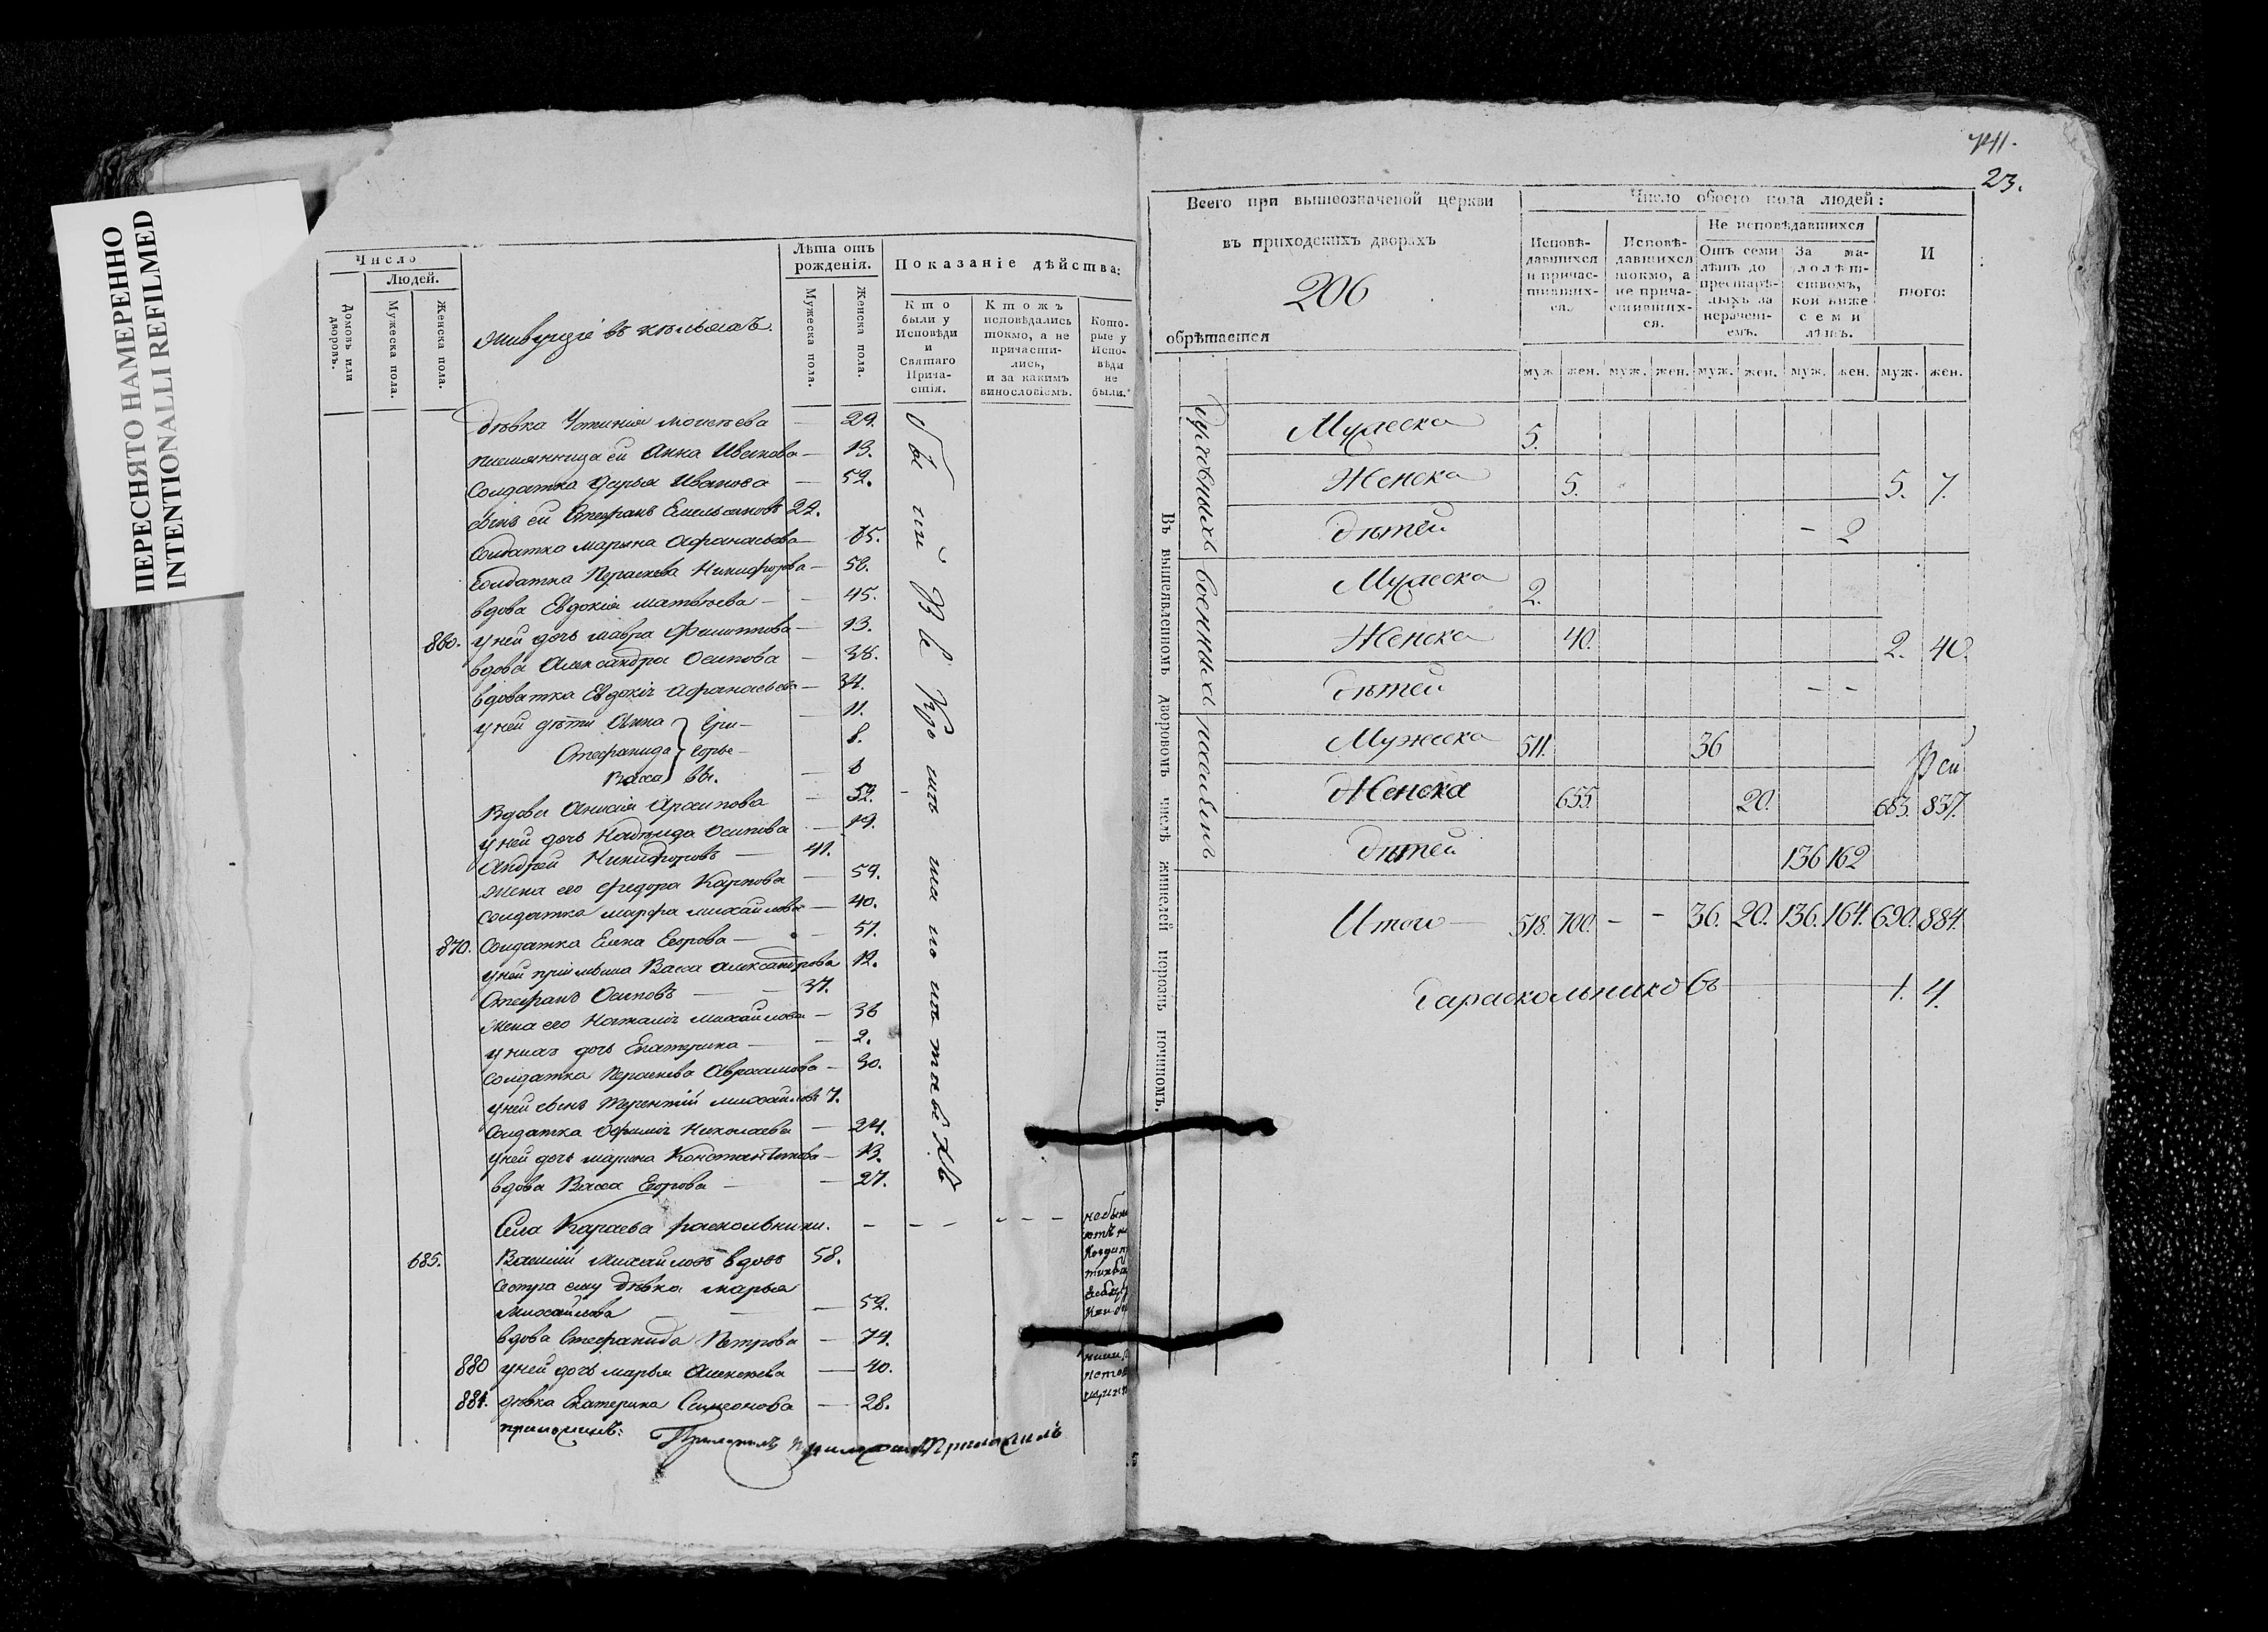 ПЕРЕСНЯТО НАМЕРЕННО
INTENTIONALLI REFILMED
Число
Людей.
Домовъ или дворовъ.
Мужеска пола.
Женска пола.
Живущіе въ кѣліяхъ
Лѣта отъ рожденія.
Мужеска пола.
Женска пола.
Показаніе дѣйства:
Кто были у Исповѣди и Святаго Прича-стія.
Ктожъ исповѣдались токмо, а не причасти-лись, и за какимъ винословіемъ.
Кото-рые у Испо-вѣди не были.
дѣвка Устинія Моисеева — 29.
племянница ей Анна Иванова — 13.
Солдатка Дарья Иванова — 52.
сынъ ей Стефанъ Емельяновъ 22.
Солдатка Марина Афанасьева — 65.
Солдатка Параскева Никифорова — 56.
вдова Евдокія Матвѣева — 45.
860. у ней дочь Мавра Филиппова — 13.
вдова Александра Осипова — 38.
вдоватка Евдокія Афанасьева — 34.
у ней дѣти Анна } Гри- — 11.
Стефанида } горье- 8.
Васса } вы. — 6
Вдова Анисія Архипова — 52.
у ней дочь Надежда Осипова — 19.
Андрей Никифоровъ — 41.
Жена его Федора Карпова — 59.
Солдатка Марфа Михайлова — 40.
870. Солдатка Елена Егорова — 51.
у ней пріемыша Васса Александрова 12.
Стефанъ Осиповъ — 37.
Жена его Наталія Михайлова — 36
у нихъ дочь Екатерина — 2.
Солдатка Параскева Авраамова — 30.
у ней сынъ Терентій Михайловъ 7.
Солдатка Афимія Николаева — 24.
у ней дочь Марина Константинова — 13.
вдова Васса Егорова — 27.
Села Караева раскольники. — — — — — —
685. Василій Михайловъ вдовъ 58.
Сестра ему дѣвка Марья
Михайлова — — 52.
вдова Стефанида Петрова — 74.
880 у ней дочь Марья Алексѣева — 40.
881. дѣвка Екатерина Симеонова — 28.
приложилъ: Приложилъ Приложилъ Приложилъ
741.
23.
Всего при вышеозначеной церкви
въ приходскихъ дворахъ
206
обрѣтается
Число обоего пола людей:
Исповѣ-давшихся и причас-тивших-ся.
Исповѣ-давшихся токмо, а не прича-стивших-ся.
Не исповѣдавшихся
Отъ семи лѣтъ до престарѣ-лыхъ за нераченi-емъ.
За ма-лолѣт-ствомъ, кои ниже семи лѣтъ.
И того:
муж. жен. муж. жен. муж. жен. муж. жен. муж. жен.
Въ вышеявленномъ дворовомъ числѣ жителей порознь чиномъ.
духовныхъ
Мужеска 5.
Женска 5. 5. 7.
дѣтей — 2
военныхъ
Мужеска 2.
Женска 40. 2. 40.
дѣтей — —
поселянъ
Мужеска 511. 36
Женска 655. 20. 683. 837.
дѣтей 136 162
Итого — 518. 700. — — 36. 20. 136. 164. 690. 884.
да раскольниковъ — 1. 4.